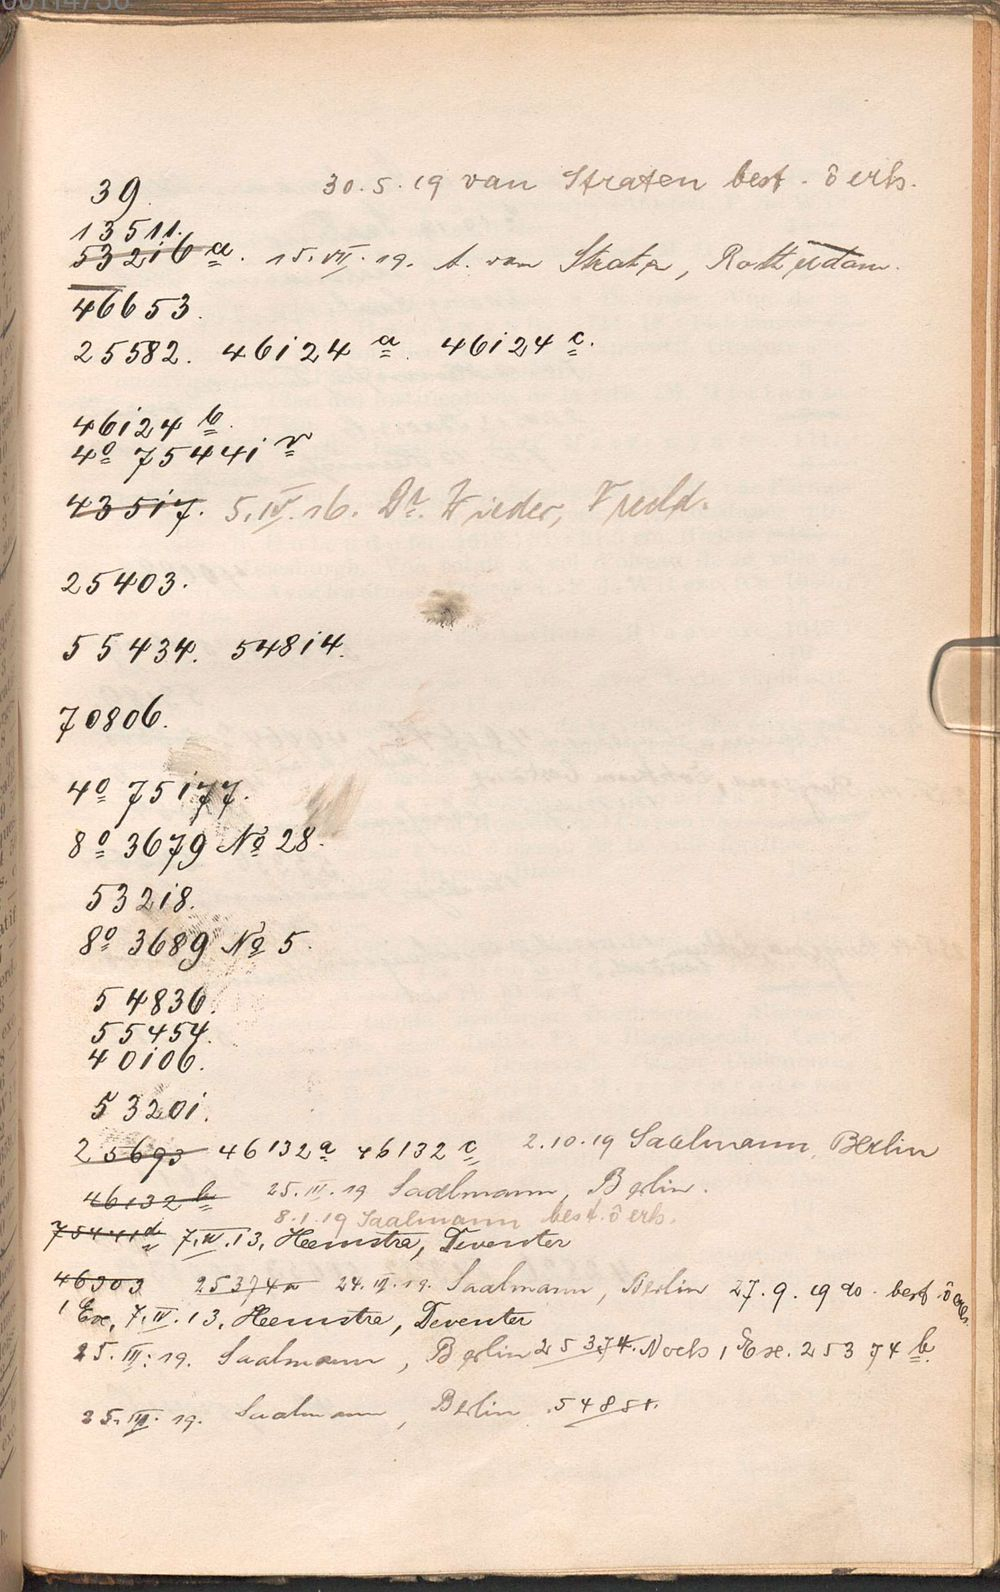 39. 30.5.19 van Straten best. ô erh.
13511.
53216 a. 15.VII.19. A. van Straten, Rotterdam.
46653.
25582. 46124 a. 46124 c.
46124 b.
4º 75441 v
43517. 5.IV.16. Dr. Wieder,
25403.
55434. 54814.
70806.
4º 75177.
8º 3679 Nº 28.
53218.
8º 3689 Nº 5.
54836.
55454.
40106.
53201.
25693 46132 a 46132 c 2.10.19 Saalmann, Berlin
46132 b 25.III.19 Saalmann, Berlin.
8.1.19 Saalmann best. ô erh.
75441 d 7.IV.13, Heemstra, Deventer
46303 25374 a 24.III.19. Saalmann, Berlin 27.9.19 do. best. ô erh.
1 Ex. 7.IV.13, Heemstra, Deventer
25.III.19. Saalmann, Berlin 25374. Noch 1 Ex. 25374 b.
25.III.19. Saalmann, Berlin